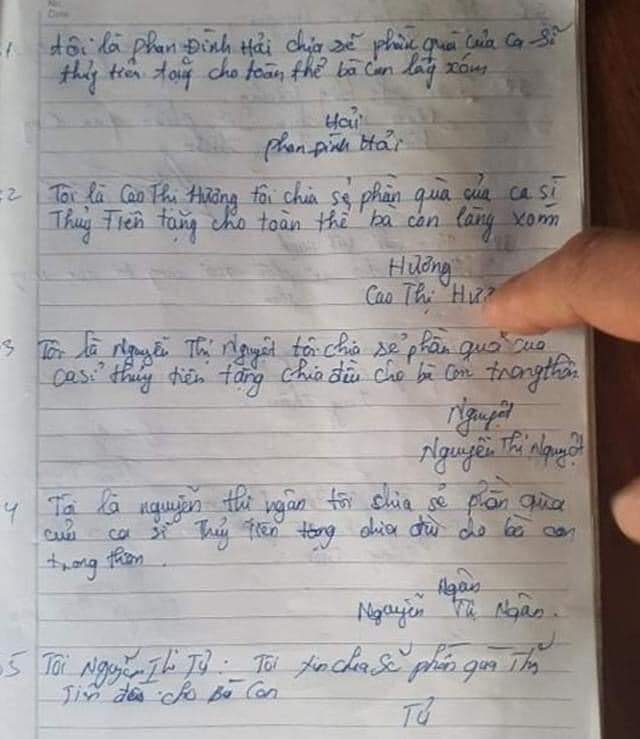 No.
Date
1 tôi là phan Đình Hải chia sẽ phần quà của ca sĩ
thủy tiên tặng cho toàn thể bà con làg xóm
Hải
phan Đình Hải
2 Tôi là Cao Thị Hương tôi chia sẻ phần quà của ca sĩ
Thuỷ Tiên tặng cho toàn thể bà con làng xóm
Hương
Cao Thị
3 Tôi là Nguyễn Thị Nguyệt tôi chia sẽ phần quà của
ca sĩ thủy tiên tặng chia đều cho bà con trong thôn
Nguyệt
Nguyễn Thị Nguyệt
4 Tôi là nguyễn thi ngân tôi chia sẻ phần qùa
của ca si Thủy Tiên tặng chia đều cho bà con
trong thôn.
Ngân
Nguyễn Thị Ngân.
5 Tôi Nguyễn Thị Tứ. Tôi xin chia sẽ phần quà Thủy
Tiên đều cho Bà Con
Tứ